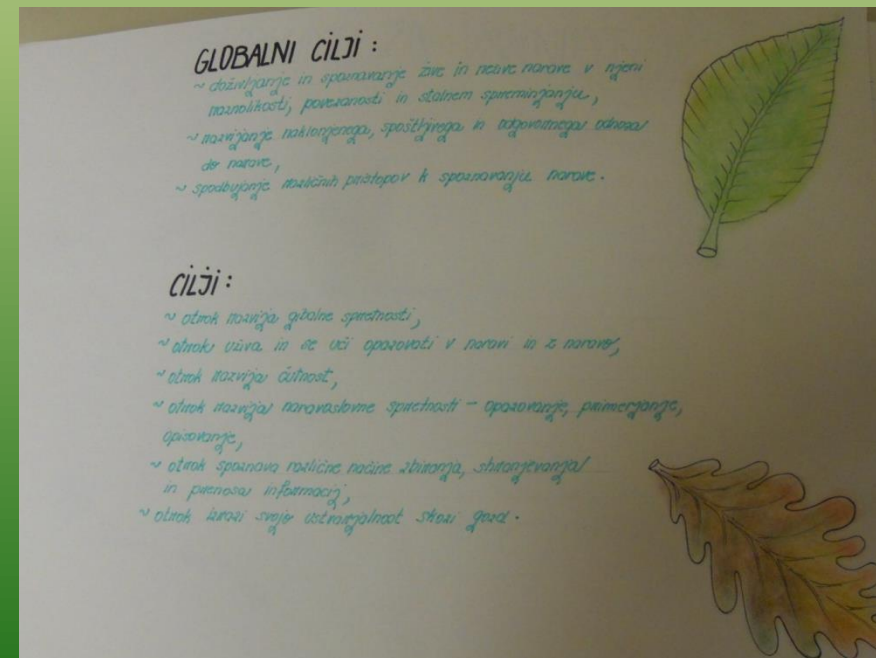 GLOBALNI CILJI :
~ doživljanje in spoznavanje žive in nežive narave v njeni
raznolikosti, povezanosti in stalnem spreminjanju,
~ razvijanje naklonjenega, spoštljivega in odgovornega odnosa
do narave,
~ spodbujanje različnih pristopov k spoznavanju narave.
CILJI :
~ otrok razvija gibalne spretnosti,
~ otrok uživa in se uči opazovati v naravi in z naravo,
~ otrok razvija čutnost,
~ otrok razvija naravoslovne spretnosti - opazovanje, primerjanje,
opisovanje,
~ otrok spoznava različne načine zbiranja, shranjevanja
in prenosa informacij,
~ otrok izrazi svojo ustvarjalnost skozi gozd.